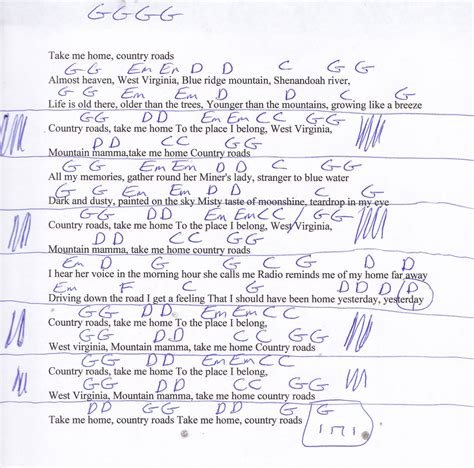 G G G G
Take me home, country roads
G G Em Em D D C G G
Almost heaven, West Virginia, Blue ridge mountain, Shenandoah river,
G G Em Em D D C G G
Life is old there, older than the trees, Younger than the mountains, growing like a breeze
G G D D Em Em C C G G
Country roads, take me home To the place I belong, West Virginia,
D D C C G G
Mountain mamma,take me home Country roads
G G Em Em D D C G G
All my memories, gather round her Miner's lady, stranger to blue water
G G Em Em D D C G
Dark and dusty, painted on the sky Misty taste of moonshine, teardrop in my eye
G G D D Em Em C C / G G
Country roads, take me home To the place I belong, West Virginia,
D D C C G G
Mountain mamma, take me home country roads
Em D G G C G D D
I hear her voice in the morning hour she calls me Radio reminds me of my home far away
Em F C G D D D D
Driving down the road I get a feeling That I should have been home yesterday, yesterday
G G D D Em Em C C
Country roads, take me home To the place I belong,
G G D D C C G G
West virginia, Mountain mamma, take me home Country roads
G G D D Em Em C C
Country roads, take me home To the place I belong,
G G D D C C G G
West Virginia, Mountain mamma, take me home country roads
D D G G D D G G
Take me home, country roads Take me home, country roads